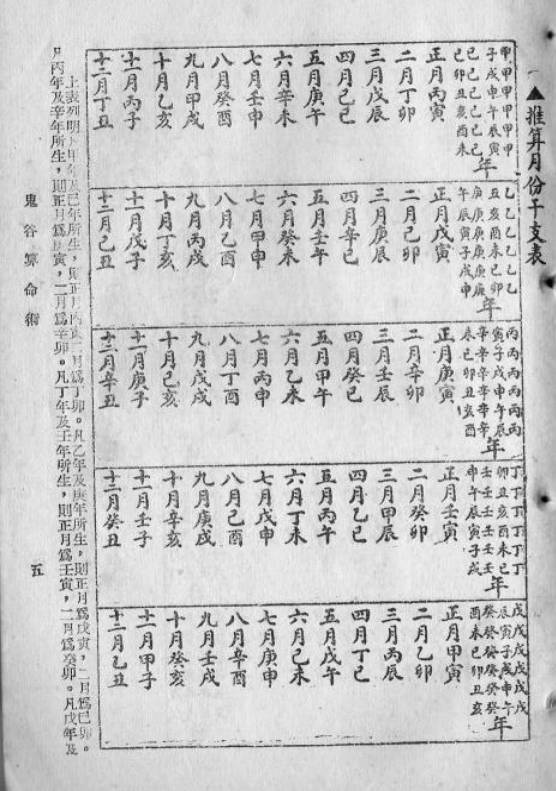 ▲推算月份干支表
甲甲甲甲甲甲
子戌申午辰寅
己己己己己己
巳卯丑亥酉未
年
正月丙寅
二月丁卯
三月戊辰
四月己巳
五月庚午
六月辛未
七月壬申
八月癸酉
九月甲戌
十月乙亥
十一月丙子
十二月丁丑
乙乙乙乙乙乙
丑亥酉未巳卯
庚庚庚庚庚庚
午辰寅子戌申
年
正月戊寅
二月己卯
三月庚辰
四月辛巳
五月壬午
六月癸未
七月甲申
八月乙酉
九月丙戌
十月丁亥
十一月戊子
十二月己丑
丙丙丙丙丙丙
寅子戌申午辰
辛辛辛辛辛辛
未巳卯丑亥酉
年
正月庚寅
二月辛卯
三月壬辰
四月癸巳
五月甲午
六月乙未
七月丙申
八月丁酉
九月戊戌
十月己亥
十一月庚子
十二月辛丑
丁丁丁丁丁丁
卯丑亥酉未巳
壬壬壬壬壬壬
申午辰寅子戌
年
正月壬寅
二月癸卯
三月甲辰
四月乙巳
五月丙午
六月丁未
七月戊申
八月己酉
九月庚戌
十月辛亥
十一月壬子
十二月癸丑
戊戊戊戊戊戊
辰寅子戌申午
癸癸癸癸癸癸
酉未巳卯丑亥
年
正月甲寅
二月乙卯
三月丙辰
四月丁巳
五月戊午
六月己未
七月庚申
八月辛酉
九月壬戌
十月癸亥
十一月甲子
十二月乙丑
上表列明凡甲年及己年所生，則正月丙寅二月爲丁卯。凡乙年及庚年所生，則正月爲戊寅，二月爲己卯。
凡丙年及辛年所生，則正月爲庚寅，二月爲辛卯。凡丁年及壬年所生，則正月爲壬寅，二月爲癸卯。凡戊年及
鬼谷算命術
五